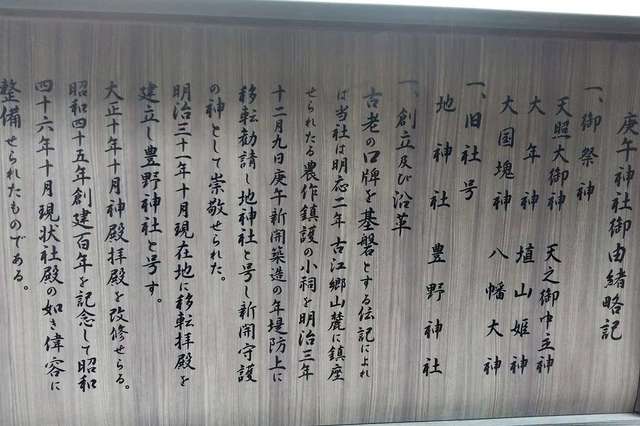 庚午神社御由緒略記
一、御祭神
天照大御神　天之御中主神
大年神　埴山姫神
大国塊神　八幡大神
一、旧社号
地神社　豊野神社
一、創立及び沿革
古老の口牌を基礎とする伝記によれ
ば当社は明応二年古江郷山麓に鎮座
せられたる農作鎮護の小祠を明治三年
十二月九日庚午新開築造の年堤防上に
移転勧請し地神社と号し新開守護
の神として崇敬せられた。
明治三十一年十月現在地に移転拝殿を
建立し豊野神社と号す。
大正十年十月神殿拝殿を改修せらる。
昭和四十五年創建百年を記念して昭和
四十六年十月現状社殿の如き偉容に
整備せられたものである。